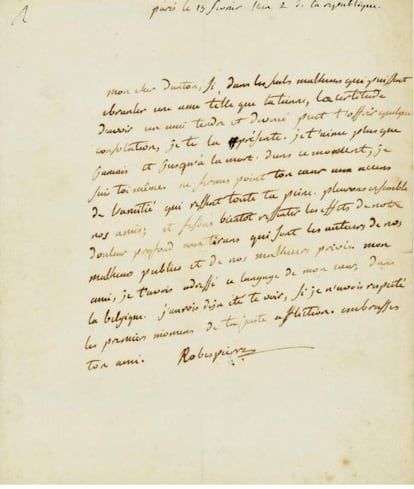 paris le 15 fevrier l'an 2 de la republique.
mon cher Danton, si, dans les seuls malheurs qui puissent
ebranler une ame telle que la tienne, la certitude
d'avoir un ami tendre et devoué peut t'offrir quelque
consolation, je te la présente. je t'aime plus que
jamais et jusqu'à la mort. dans ce moment, je
suis toi même. ne ferme point ton cœur aux accens
de l'amitié qui ressent toute ta peine. pleurons ensemble
nos amis, et faisons bientot ressentir les effets de notre
douleur profonde aux tirans qui sont les auteurs de nos
malheurs publics et de nos malheurs privés. mon
ami, je t'avois adressé ce langage de mon cœur, dans
la belgique. j'aurois déja été te voir, si je n'avois respecté
les premiers momens de ta juste affliction. embrasses
ton ami. Robespierre